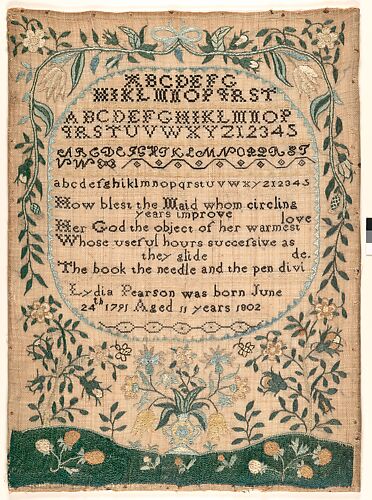 ABCDEFG
HIKLMNOPRST
ABCDEFGHIKLMNOP
QRSTUVWXYZ12345
ABCDEFGHIKLMNOPQRST
VW
abcdefghiklmnopqrstuvwxyz12345
How blest the Maid whom circling
years improve
Her God the object of her warmest love
Whose useful hours successive as
they glide
The book the needle and the pen divide.
Lydia Pearson was born June
24th 1791 Aged 11 years 1802